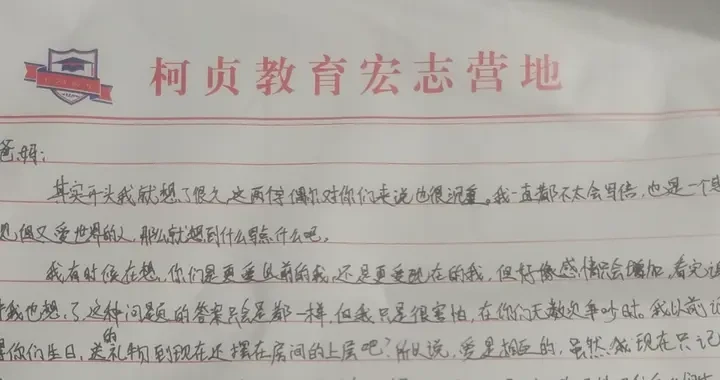 柯贞教育宏志营地
爸妈：
其实开头我就想了很久，这两年偶尔对你们来说也很沉重。我一直都不太会写信，也是一个
但又爱世界的人，那么就想到什么写点什么吧。
我有时候在想，你们是更爱以前的我，还是更爱现在的我，但好像感情只会增加，看完
我也想了，这种问题的答案只会是都一样，但我只是很害怕，在你们无数次争吵时。我以前
你们生日，送的礼物到现在还摆在房间的上层吧？所以说，爱是相互的，虽然我现在只记